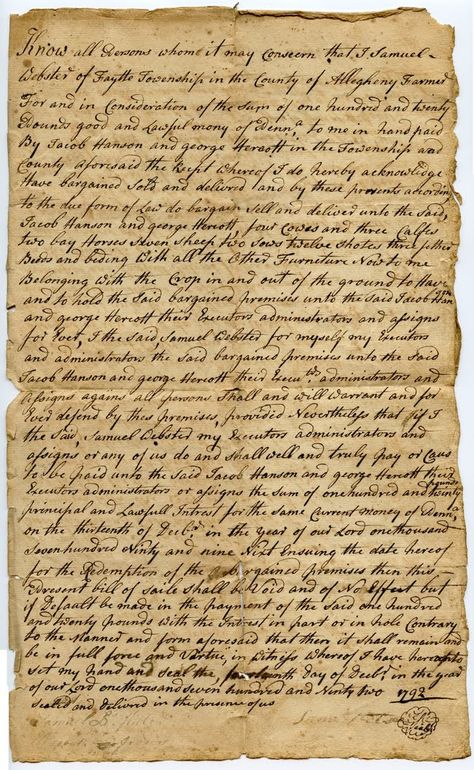 Know all Persons whome it may Concern that I Samuel
Webster of Faytte Township in the County of Allegheny Farmer
For and in Consideration of the Sum of one hundred and twenty
Pounds good and Lawful mony of Penn.a to me in hand paid
By Jacob Hanson and george Hercott in the Township and
County aforesaid the Recipt Whereof I do hereby acknowlidge
Have bargained Sold and delivered and by these presents according
to the due form of Law do bargain Sell and deliver unto the Said,
Jacob Hanson and george Hercott, four Cowes and three Calfes
two bay Horses Seven Sheep two Sows twelve Shotes three fether
Beds and beding With all the Other Furniture Now to me
Belonging With the Crop in and out of the ground to Have
and to hold the Said bargained premises unto the Said Jacob Hanson
and george Hercott their Executors administrators and assigns
for Ever, I the Said Samuel Webster for myself my Executors
and administrators the Said bargained premises unto the Said
Jacob Hanson and george Hercott their Execu.trs administrators and
assigns agains all persons Shall and will Warrant and for
Ever defend by thes premises, provided Nevertheless that if I
the Said, Samuel Webster my Executors administrators and
assigns or any of us do and Shall well and truly pay or Caus
to be paid unto the Said Jacob Hanson and george Hercott their
Executors administrators or assigns the Sum of one hundred and twenty pounds
principal and Lawfull Intrest for the Same Current Money of Penn.a
on the thirteenth of Decb.r in the year of our Lord one thousand
Seven hundred Ninty and nine Next Ensuing the date hereof
for the Redemption of the bargained premises then this
Present bill of Saile Shall be Void and of No Effect but
if Default be made in the payment of the Said one hundred
and twenty pounds with the Intrest in part or in hole Contrary
to the Manner and form aforesaid that then it Shall remain and
be in full force and Vertue, in Witness Whereof I have hereunto
set my hand and Seal the, fourteenth Day of Decb.r in the year
of our Lord one thousand Seven hundred and Ninty two 1792
Sealed and delivered in the presence of us